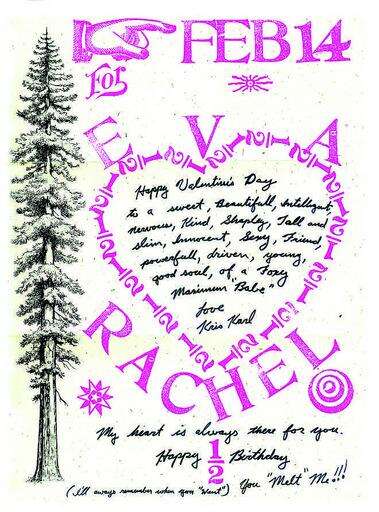 FEB 14
For
EVA
Happy Valentine's Day
to a sweet, Beautifull, intelligent,
nervous, Kind, Shapley, Tall and
slim, Innocent, Sexy, Friend,
powerfull, driven, young,
good soul, of a "Foxy
Maximum Babe"
love
Kris Karl
RACHEL
My heart is always there for you.
Happy 1/2 Birthday
(I'll always remember when you "Went") You "Melt" Me!!!